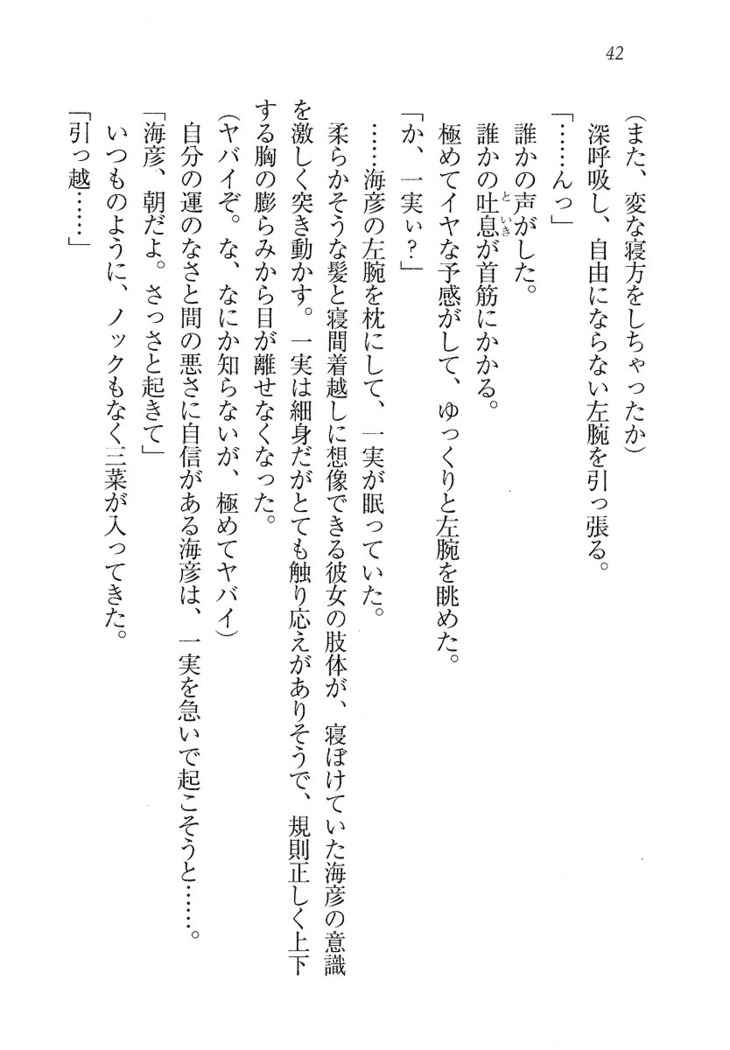 42
(また、変な寝方をしちゃったか)
深呼吸し、自由にならない左腕を引っ張る。
「……んっ」
誰かの声がした。
誰かの吐息が首筋にかかる。
極めてイヤな予感がして、ゆっくりと左腕を眺めた。
「か、一実ぃ?」
……海彦の左腕を枕にして、一実が眠っていた。
柔らかそうな髪と寝間着越しに想像できる彼女の肢体が、寝ぼけていた海彦の意識
を激しく突き動かす。一実は細身だがとても触り応えがありそうで、規則正しく上下
する胸の膨らみから目が離せなくなった。
(ヤバイぞ。な、なにか知らないが、極めてヤバイ)
自分の運のなさと間の悪さに自信がある海彦は、一実を急いで起こそうと……。
「海彦、朝だよ。さっさと起きて」
いつものように、ノックもなく三菜が入ってきた。
「引っ越……」